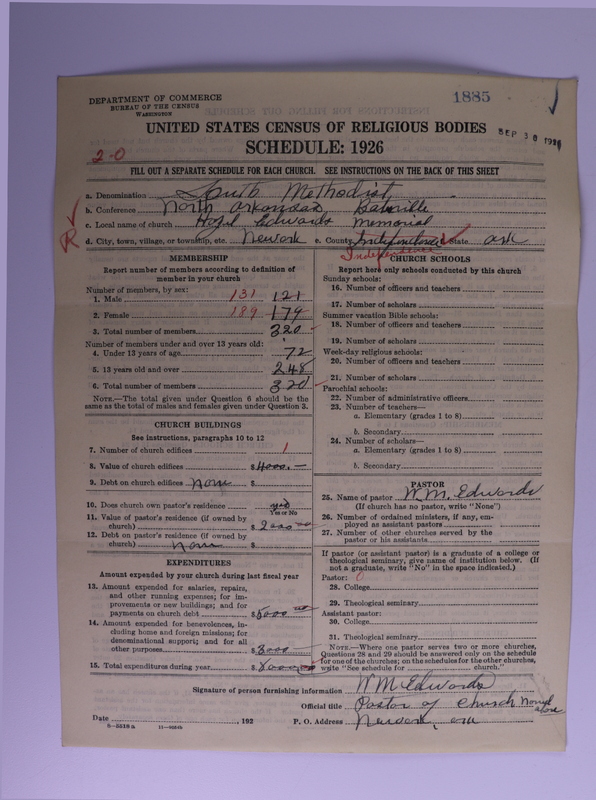 DEPARTMENT OF COMMERCE
BUREAU OF THE CENSUS
WASHINGTON
1885
SEP 30 1926
UNITED STATES CENSUS OF RELIGIOUS BODIES
SCHEDULE: 1926
2-0
FILL OUT A SEPARATE SCHEDULE FOR EACH CHURCH. SEE INSTRUCTIONS ON THE BACK OF THIS SHEET
a. Denomination South Methodist
b. Conference North Arkansas Batesville
c. Local name of church Edwards Memorial
R
d. City, town, village, or township, etc. Newark e. County Independence State Ark
Independence
MEMBERSHIP
Report number of members according to definition of
member in your church
Number of members, by sex:
1. Male 131 121
2. Female 189 179
3. Total number of members 320
Number of members under and over 13 years old:
4. Under 13 years of age 72
5. 13 years old and over 248
6. Total number of members 320
NOTE.—The total given under Question 6 should be the
same as the total of males and females given under Question 3.
CHURCH BUILDINGS
See instructions, paragraphs 10 to 12
7. Number of church edifices 1
8. Value of church edifices $4000.—
9. Debt on church edifices none $
10. Does church own pastor's residence yes
Yes or No
11. Value of pastor's residence (if owned by
church) $2000 00
12. Debt on pastor's residence (if owned by
church) none $
EXPENDITURES
Amount expended by your church during last fiscal year
13. Amount expended for salaries, repairs,
and other running expenses; for im-
provements or new buildings; and for
payments on church debt $5000 00
14. Amount expended for benevolences, in-
cluding home and foreign missions; for
denominational support; and for all
other purposes $3000
15. Total expenditures during year $8000 00
CHURCH SCHOOLS
Report here only schools conducted by this church
Sunday schools:
16. Number of officers and teachers
17. Number of scholars
Summer vacation Bible schools:
18. Number of officers and teachers
19. Number of scholars
Week-day religious schools:
20. Number of officers and teachers
21. Number of scholars
Parochial schools:
22. Number of administrative officers
23. Number of teachers—
a. Elementary (grades 1 to 8)
b. Secondary
24. Number of scholars—
a. Elementary (grades 1 to 8)
b. Secondary
PASTOR
25. Name of pastor W. M. Edwards
(If church has no pastor, write "None")
26. Number of ordained ministers, if any, em-
ployed as assistant pastors
27. Number of other churches served by the
pastor or his assistants
If pastor (or assistant pastor) is a graduate of a college or
theological seminary, give name of institution below. (If
not a graduate, write "No" in the space indicated.)
Pastor: 0
28. College
29. Theological seminary
Assistant pastor:
30. College
31. Theological seminary
NOTE.—Where one pastor serves two or more churches,
Questions 28 and 29 should be answered only on the schedule
for one of the churches; on the schedules for the other churches,
write "See schedule for church."
Signature of person furnishing information W M Edwards
Official title Pastor of Church Named above
Date , 192 P. O. Address Newark, Ark
8—5518 a 11—9084b